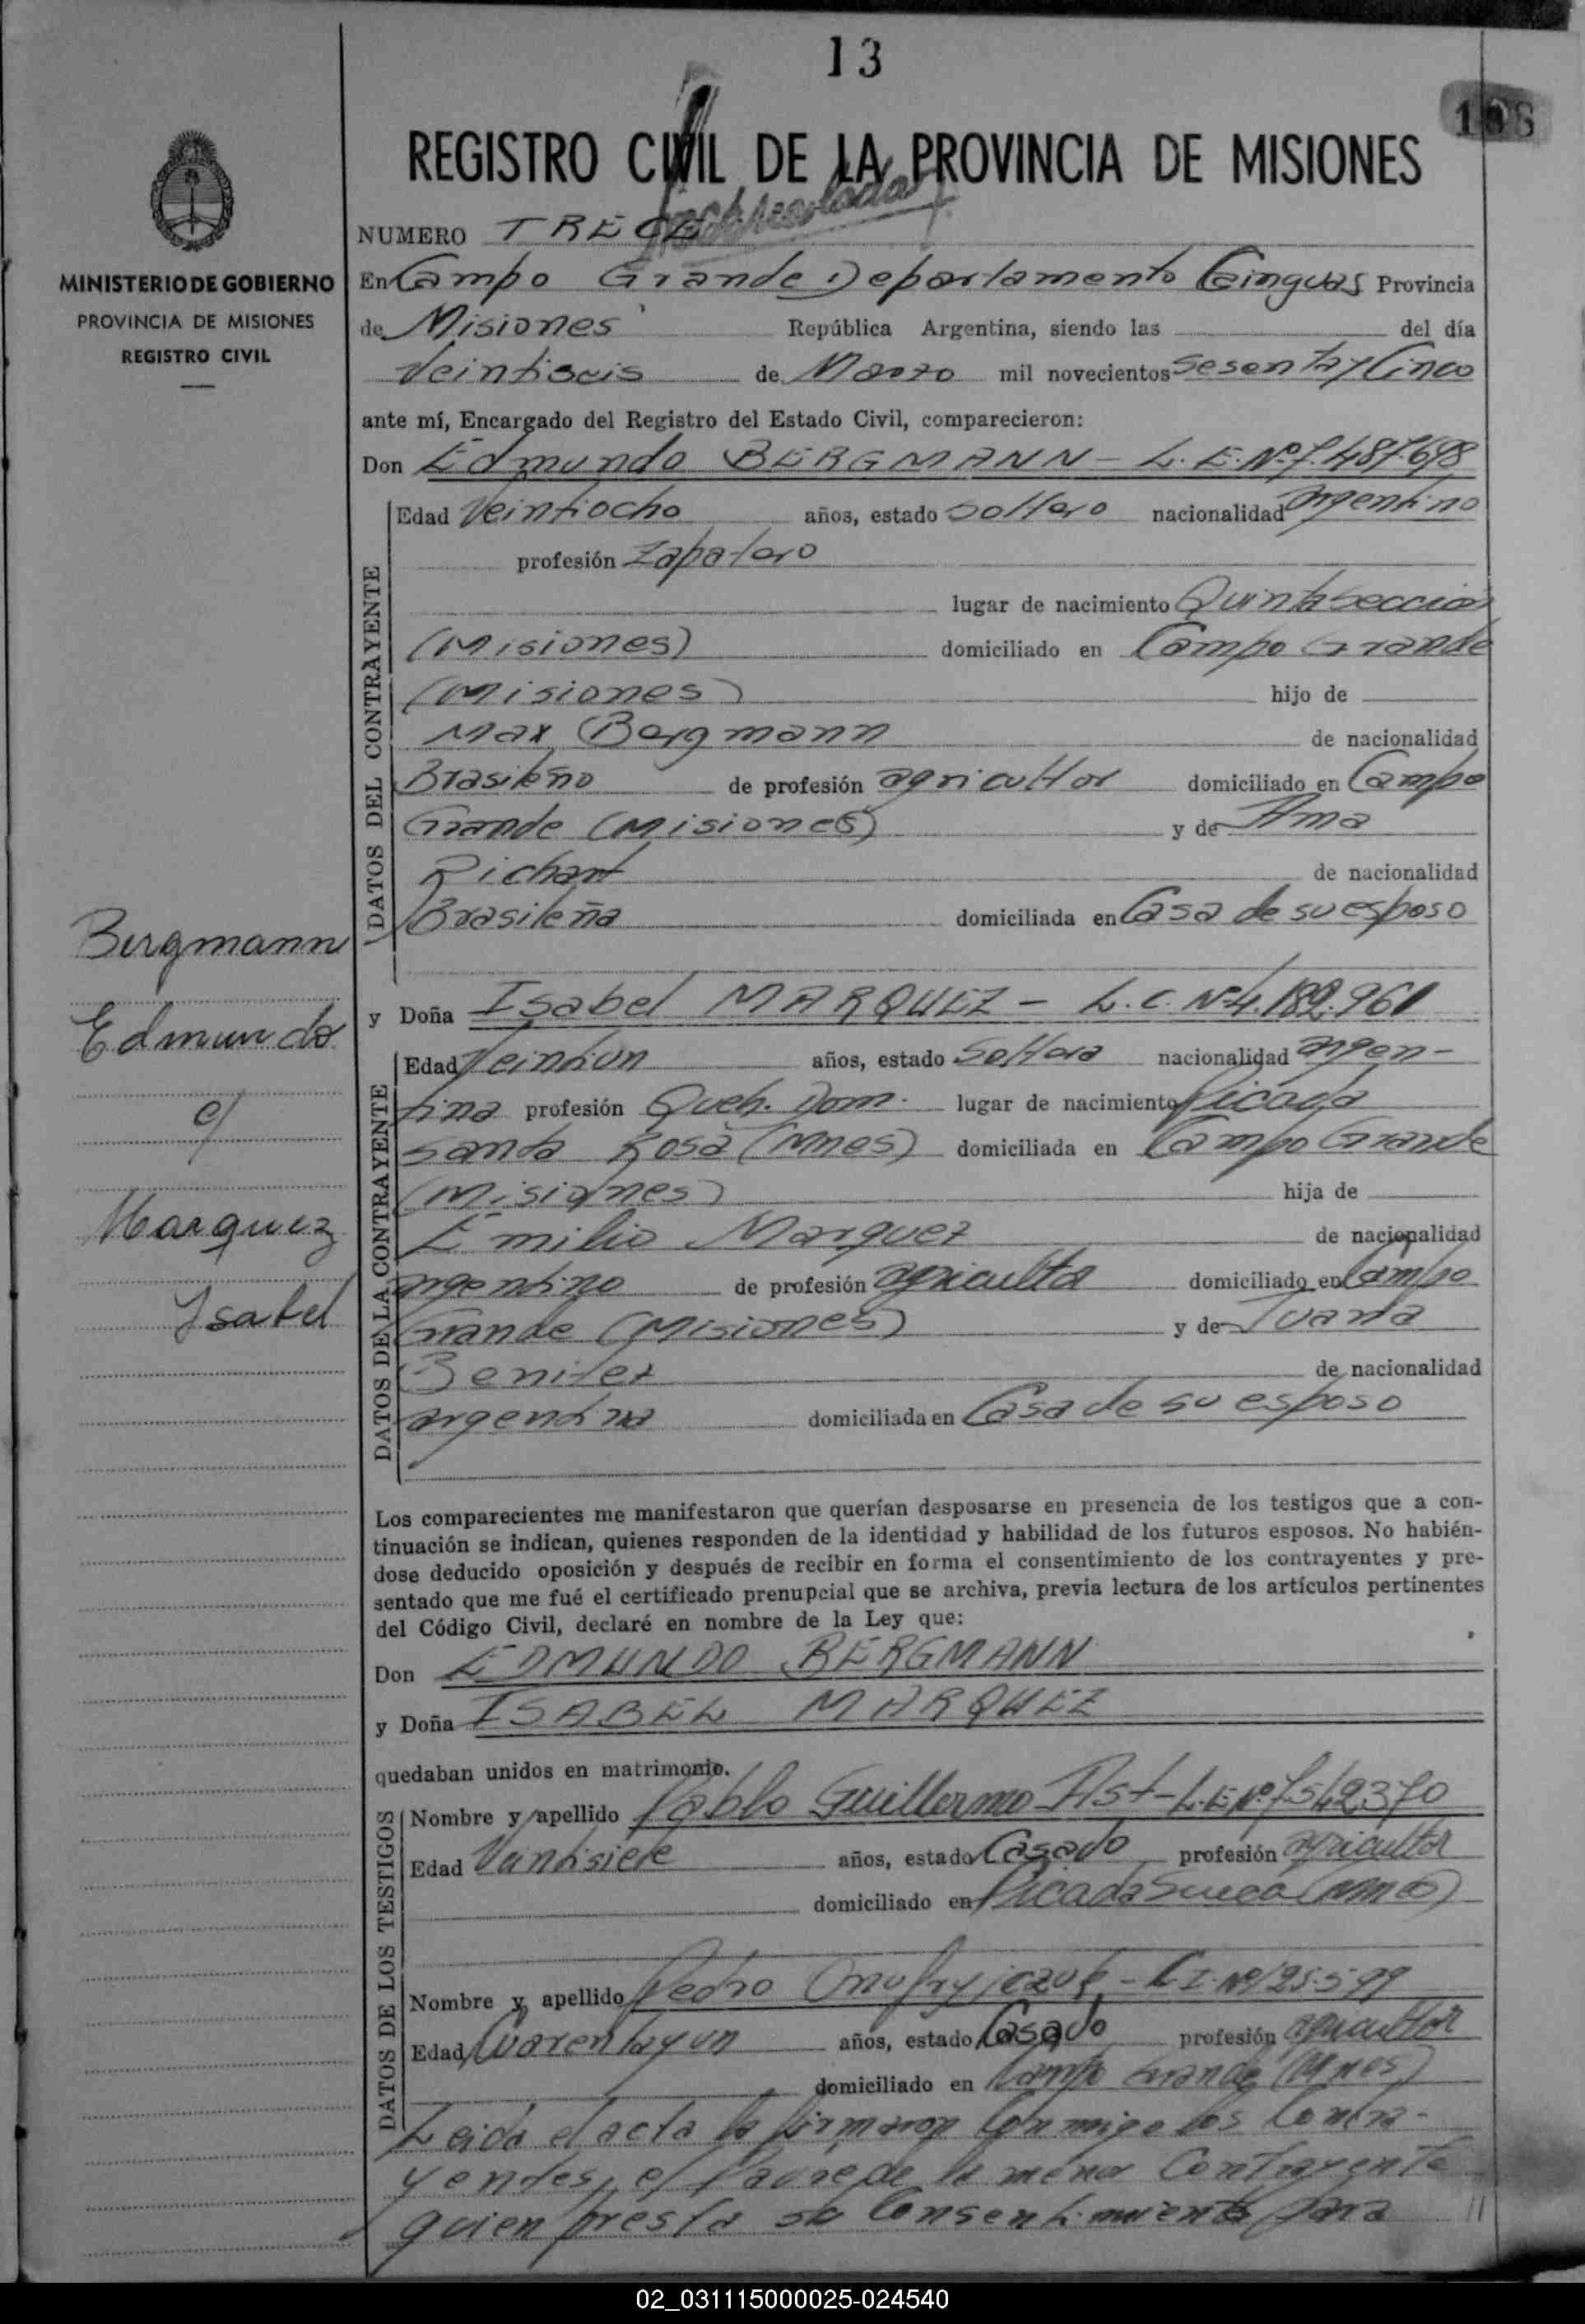 13
108
REGISTRO CIVIL DE LA PROVINCIA DE MISIONES
NUMERO TRECE
MINISTERIO DE GOBIERNO
PROVINCIA DE MISIONES
REGISTRO CIVIL
En Campo Grande Departamento Cainguas Provincia
de Misiones República Argentina, siendo las del día
Veintiseis de Marzo mil novecientos sesenta y Cinco
ante mí, Encargado del Registro del Estado Civil, comparecieron:
Don Edmundo BERGMANN - L.E.Nº 7.487.698
DATOS DEL CONTRAYENTE
Edad Veintiocho años, estado soltero nacionalidad argentino
profesión Zapatero
lugar de nacimiento Quinta Seccion
(Misiones) domiciliado en Campo Grande
(Misiones) hijo de
Max Bergmann de nacionalidad
Brasileño de profesión agricultor domiciliado en Campo
Grande (Misiones) y de Alma
Richart de nacionalidad
Brasileña domiciliada en Casa de su esposo
Bergmann
Edmundo
c/
Marquez
Isabel
y Doña Isabel MARQUEZ - L.C. Nº 4.189.961
DATOS DE LA CONTRAYENTE
Edad Veintiun años, estado Soltera nacionalidad argen-
tina profesión Queh. Dom. lugar de nacimiento Picada
Santa Rosa (Mnes) domiciliada en Campo Grande
(Misiones) hija de
Emilio Marquez de nacionalidad
argentino de profesión agricultor domiciliado en Campo
Grande (Misiones) y de Juana
Benitez de nacionalidad
argentina domiciliada en Casa de su esposo
Los comparecientes me manifestaron que querían desposarse en presencia de los testigos que a con-
tinuación se indican, quienes responden de la identidad y habilidad de los futuros esposos. No habién-
dose deducido oposición y después de recibir en forma el consentimiento de los contrayentes y pre-
sentado que me fué el certificado prenupcial que se archiva, previa lectura de los artículos pertinentes
del Código Civil, declaré en nombre de la Ley que:
Don EDMUNDO BERGMANN
y Doña ISABEL MARQUEZ
quedaban unidos en matrimonio.
DATOS DE LOS TESTIGOS
Nombre y apellido Pablo Guillermo Ast - L.E.Nº 7542370
Edad Veintisiete años, estado Casado profesión agricultor
domiciliado en Picada Sueca (Mnes)
Nombre y apellido Pedro - C.I. Nº 125.599
Edad Cuarenta y un años, estado Casado profesión agricultor
domiciliado en Campo Grande (Mnes)
Leida el acta la firmaron conmigo los Contra-
yentes, el Padre de la menor Contrayente
quien presta su Consentimiento para //
02_031115000025-024540